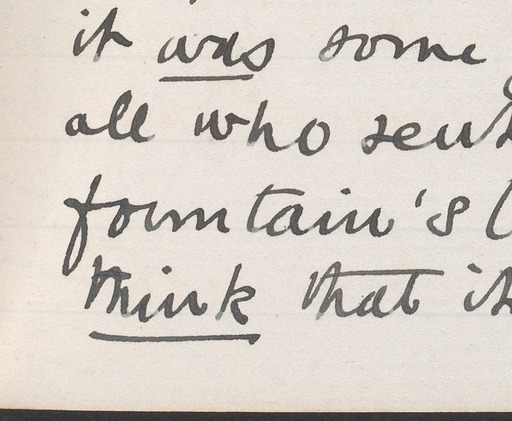 it was some
all who sent
fountain's (
think that it